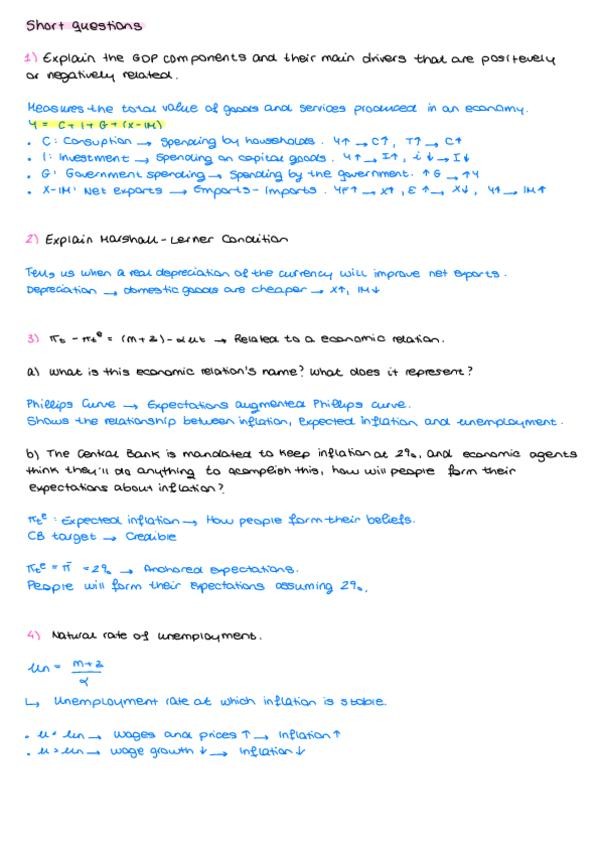 Short questions
1) Explain the GDP components and their main drivers that are positevely
or negatively related.
Measures the total value of goods and services produced in an economy.
Y = C + I + G + (X-IM)
• C: Consuption → Spending by households. Y↑ → C↑, T↑ → C↑
• I: Investment → Spending on capital goods. Y↑ → I↑, i↓ → I↓
• G: Government spending → Spending by the government. ↑G → ↑Y
• X-IM: Net exports → Emports - Imports. YF↑ → X↑, E↑ → X↓, Y↑ → IM↑
2) Explain Marshall-Lerner Condition
Tells us when a real depreciation of the currency will improve net exports.
Depreciation → domestic goods are cheaper → X↑, IM↓
3) πt - πt^e = (m+z) - αut → Related to a economic relation.
a) What is this economic relation's name? What does it represent?
Phillips Curve → Expectations augmented Phillips curve.
Shows the relationship between inflation, Expected inflation and unemployment.
b) The Central Bank is mandated to keep inflation at 2%, and economic agents
think they'll do anything to acomplish this, how will people form their
expectations about inflation?
πt^e : Expected inflation → How people form their beliefs.
CB target → Credible
πt^e = π̄ = 2% → Anchored expectations.
People will form their expectations assuming 2%.
4) Natural rate of unemployment.
un = m+z
α
↳ Unemployment rate at which inflation is stable.
• u < un → wages and prices ↑ → Inflation ↑
• u > un → wage growth ↓ → Inflation ↓